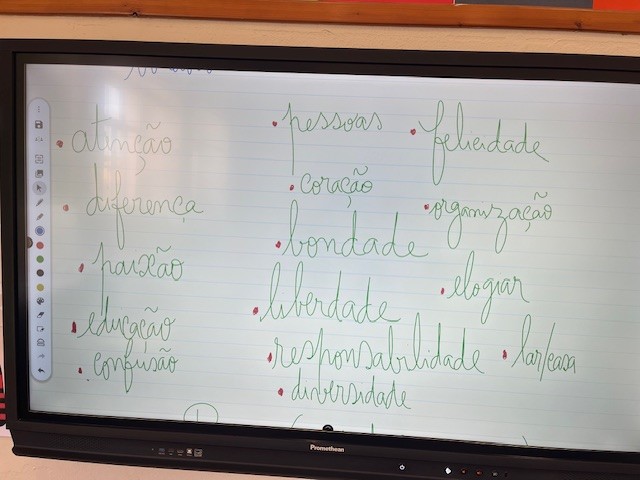 • pessoas
• felicidade
• atenção
• coração
• diferença
• organização
• bondade
• paixão
• elogiar
• liberdade
• educação
• responsabilidade
• lar/casa
• confusão
• diversidade
Promethean